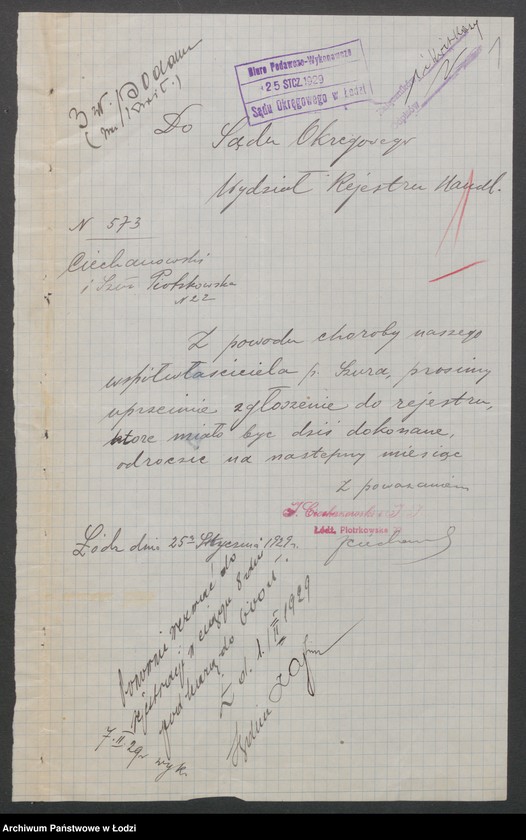 Biuro Podawczo-Wykonawcze
25 STCZ. 1929
Sądu Okręgowego w Łodzi
1
Do Sądu Okręgowego
Wydział Rejestru Handl.
N 573
Ciechanowski
i Szur Piotrkowska
N 22
Z powodu choroby naszego
współwłaściciela p. Szura, prosimy
uprzejmie zgłoszenie do rejestru,
które miało być dziś dokonane,
odroczić na następny miesiąc
Z poważaniem
Łódź, Piotrkowska
Łódź dnia 25go Stycznia 1929r.
Ponownie wezwać do
rejestracji w ciągu 8 dni
pod karą do
Ł. d. 1/II 1929
7.II.29r wyk.
Archiwum Państwowe w Łodzi